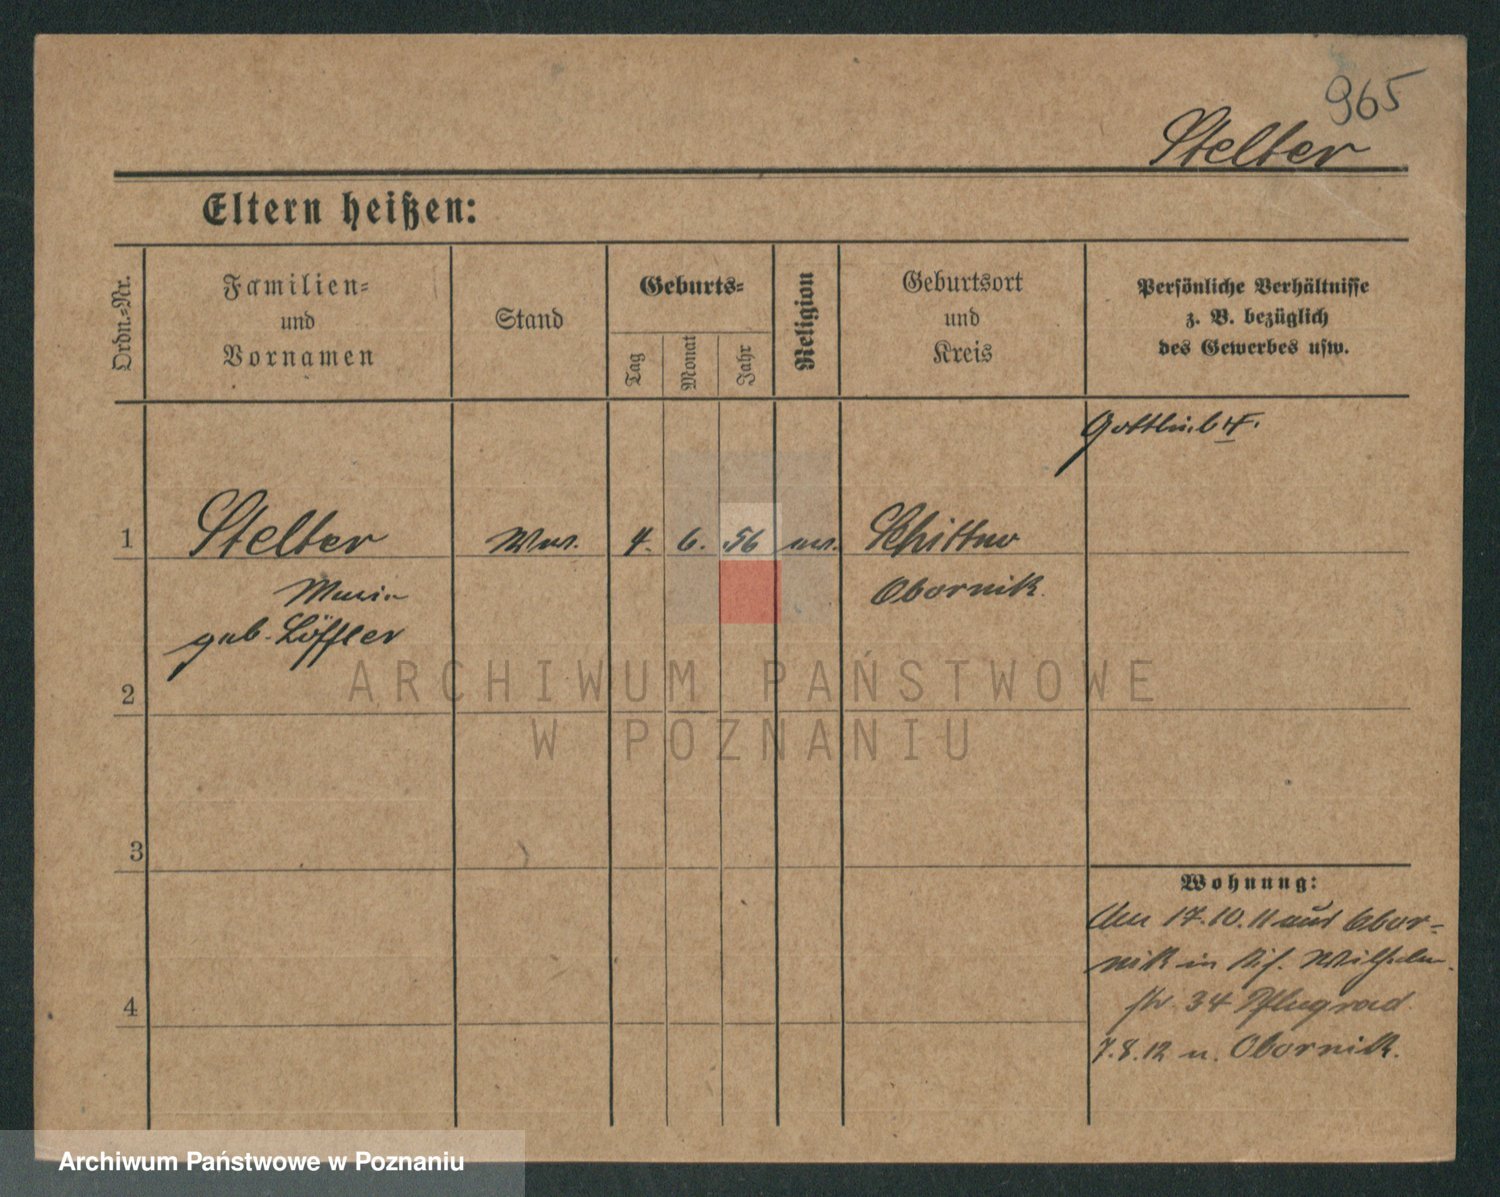 965
Stelter
Eltern heißen:
Ordn.-Nr.
Familien-
und
Vornamen
Stand
Geburts-
Tag
Monat
Jahr
Religion
Geburtsort
und
Kreis
Persönliche Verhältnisse
z. B. bezüglich
des Gewerbes usw.
Gottlieb
1
Stelter
Ww.
4.
6.
56
ev.
Schittno
Marie
Obornik
geb. Löffler
2
ARCHIWUM PAŃSTWOWE
W POZNANIU
3
Wohnung:
17.10.11 aus Obor-
nik in Wilhelm
str. 34 Pflugrad
4
7.8.12 n. Obornik.
Archiwum Państwowe w Poznaniu